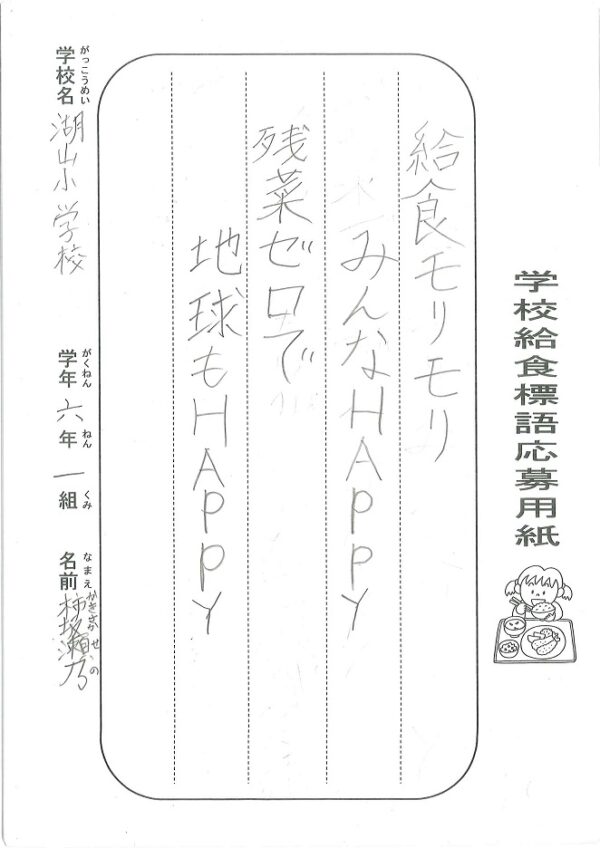 学校給食標語応募用紙
給食モリモリ
みんなHAPPY
残菜ゼロで
地球もHAPPY
がっこうめい
学校名 湖山小学校
がくねん ねん くみ
学年 六年 一組
なまえ かきざか せの
名前 柿坂瀬乃